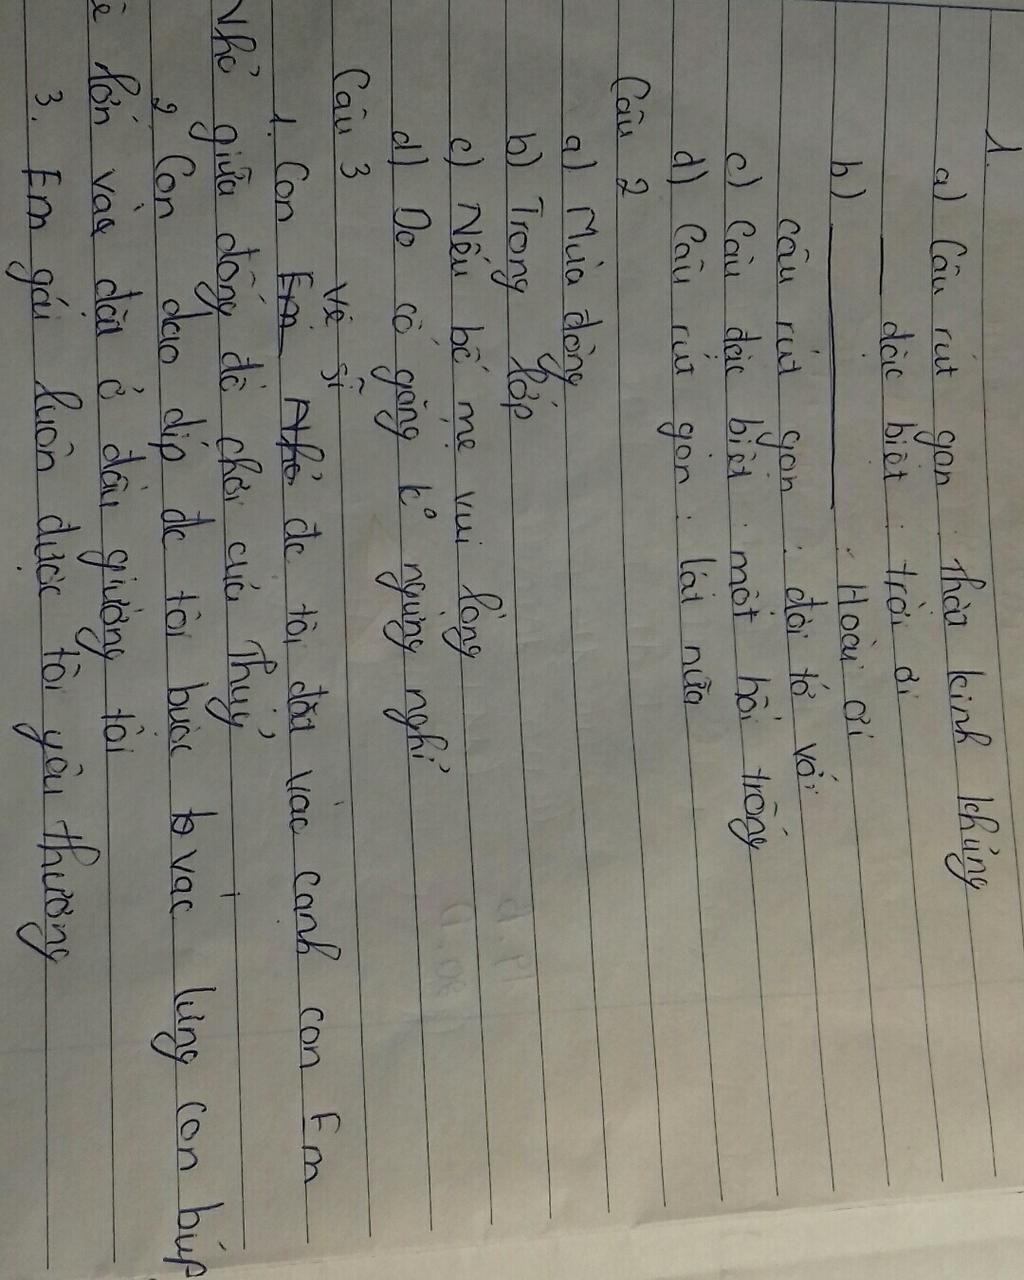 1.
a) Câu rút gọn : Thật kinh khủng
___ đặc biệt : trời ơi
b) ___ : Hoài ơi
câu rút gọn : đợi tớ với
c) Câu đặc biệt : một hồi trống
d) Câu rút gọn : lát nữa
Câu 2
a) Mùa đông
b) Trong lớp
c) Nếu bố mẹ vui lòng
d) Do cố gắng k° ngừng nghỉ
Câu 3
vệ sĩ
1. Con Em Nhỏ đc tôi đặt vào cạnh con Em
Nhỏ giữa đống đồ chơi của Thuỷ
2. Con dao díp đc tôi buộc b vào lưng con búp
ê lớn và đặt ở đầu giường tôi
3. Em gái luôn được tôi yêu thương